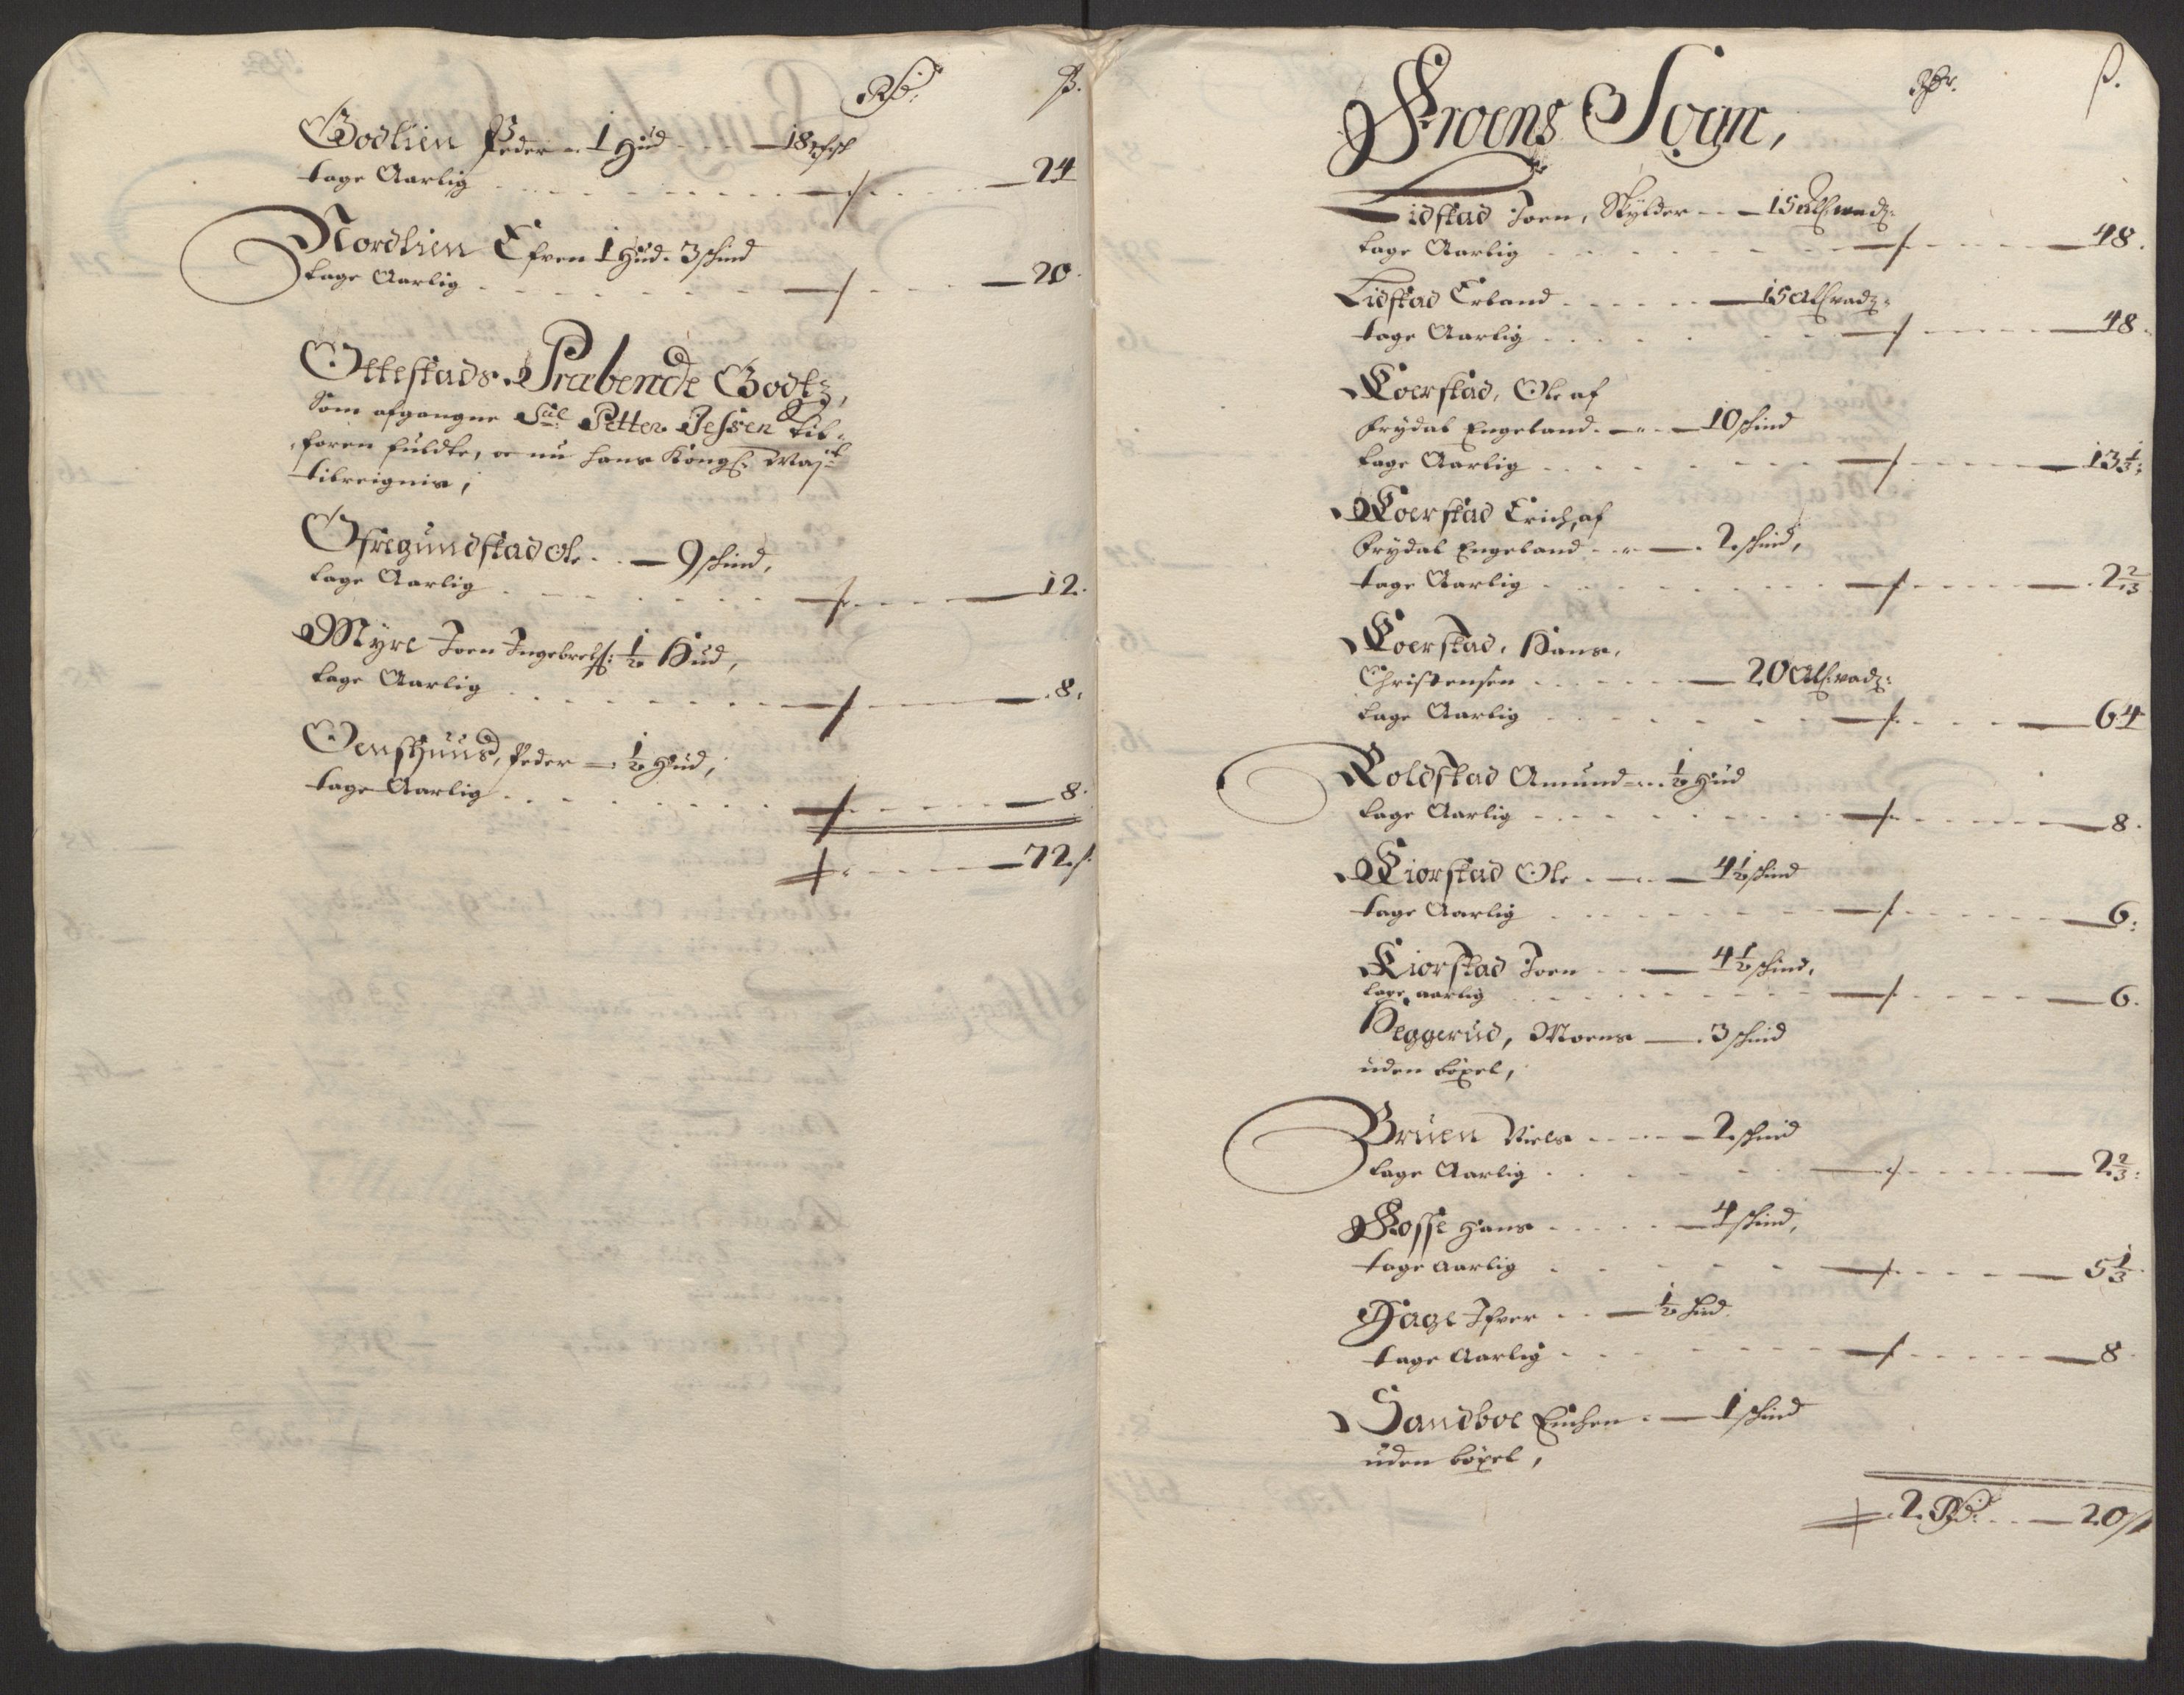 Rd. ß.
Godlien Peder - 1 Hud - 18
tage Aarlig - / - 24
Nordlien Efven 1 Hud. 3 skind
tage Aarlig - / - 20.
Ottestads. Præbende Godtz,
som afgangne Sal: Petter Jessen til-
foren fuldte, oc nu hans Kongl: Mayt
tilreignis,
Ofregundstad Ole - 9 skind,
tage Aarlig - / - 12.
Myre Joen Ingebrets: 1/2 Hud,
tage Aarlig - / - 8.
Oenshuus, Peder - 1/2 Hud,
tage Aarlig - / - 8.
/ - 72 ß.
Froens Sogn,
Rdr. ß.
Lidstad Joen, Skylder - 15 Alf: vadz:
tage Aarlig - / - 48.
Lidstad Erland - 15 Alf: vadz:
tage Aarlig - / - 48.
Koerstad, Ole af
Frydal Engeland - 10 skind
tage Aarlig - / - 13 1/3:
Koerstad Erich, af
Frydal Engeland - 2 skind,
tage Aarlig - / - 2 2/3
Koerstad, Hans,
Christensen - 20 Alf: vadz:
tage Aarlig - / - 64
Roldstad Amund - 1/2 Hud
tage Aarlig - / - 8.
Kiorstad Ole - 4 1/2 skind
tage Aarlig - / - 6:
Kiorstad Joen - 4 1/2 skind,
tage aarlig - / - 6.
Heggerud, Moens - 3 skind
uden böxel,
Bruen Niels - 2 skind
tage Aarlig - / - 2 2/3:
Fosse Hans - 4 skind,
tage aarlig - / - 5 1/3
Hage Ifver - 1/2 hud
tage Aarlig - / - 8
Sandboe - 1 skind
uden böxel,
2 Rd. - 20 ß